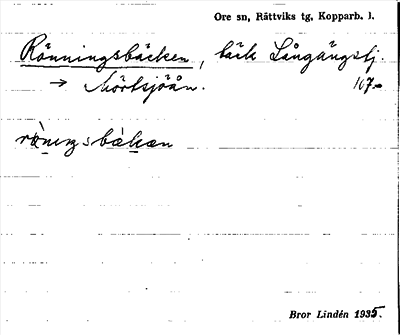 Ore sn, Rättviks tg, Kopparb. l.
Rönningsbäcken, bäck Långängstj.
→ Mörtsjöån. 107.
rö̀nɩŋsbäkən
Bror Lindén 1935.